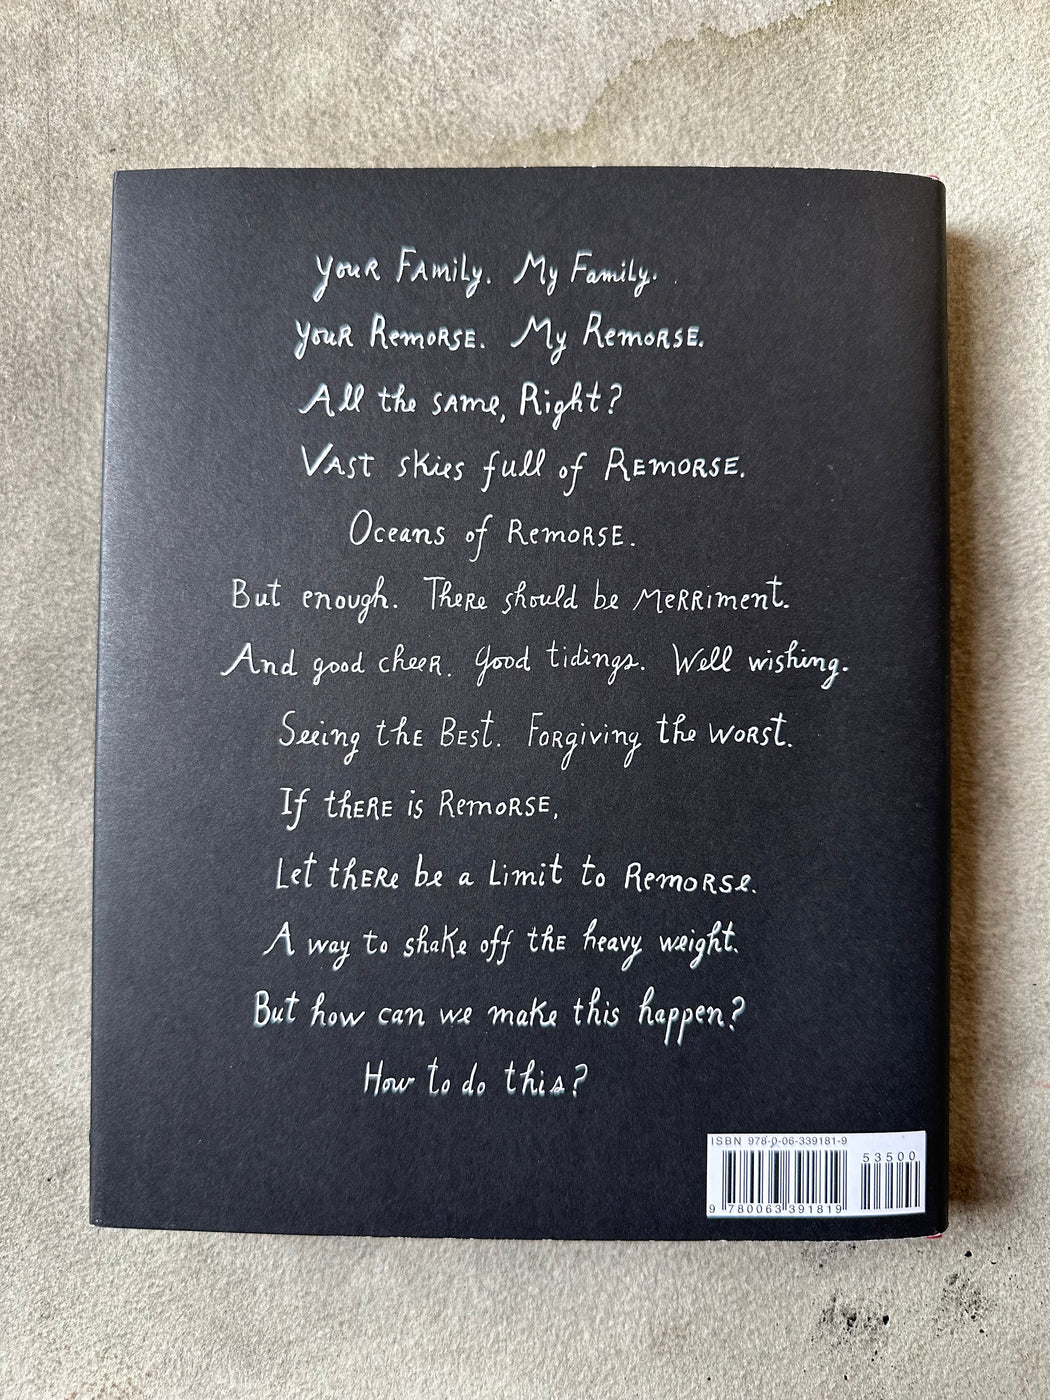 Your Family. My Family.
Your Remorse. My Remorse.
All the same, Right?
Vast skies full of Remorse.
Oceans of Remorse.
But enough. There should be merriment.
And good cheer. Good tidings. Well wishing.
Seeing the Best. Forgiving the worst.
If there is Remorse,
Let there be a Limit to Remorse.
A way to shake off the heavy weight.
But how can we make this happen?
How to do this?
ISBN 978-0-06-339181-9
53500
9 780063 391819